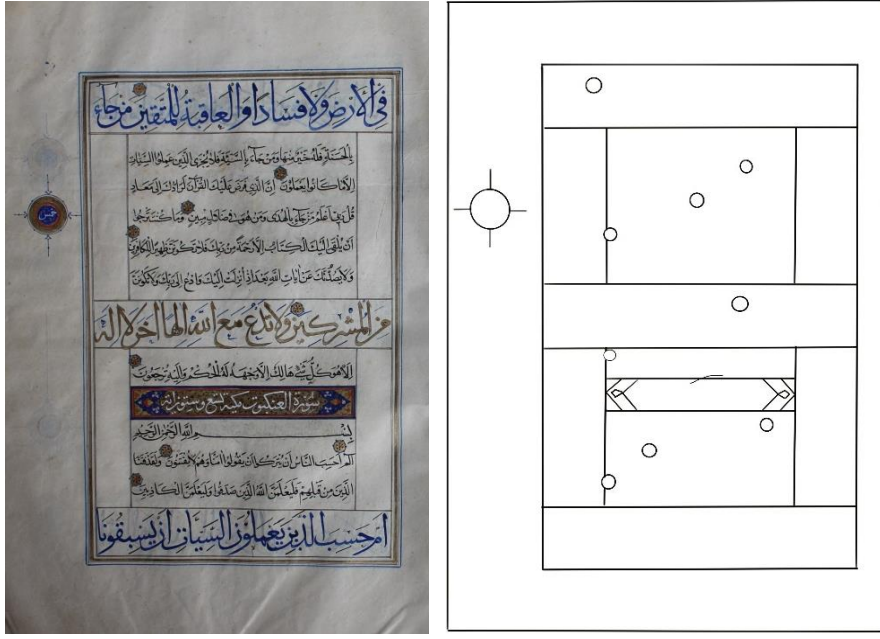 في الأرض ولا فسادا والعاقبة للمتقين من جاء
بالحسنة فله خير منها ومن جاء بالسيئة فلا يجزى الذين عملوا السيئات
إلا ما كانوا يعملون إن الذي فرض عليك القرآن لرادك إلى معاد
قل ربي أعلم من جاء بالهدى ومن هو في ضلال مبين وما كنت ترجوا
أن يلقى إليك الكتاب إلا رحمة من ربك فلا تكونن ظهيرا للكافرين
ولا يصدنك عن آيات الله بعد إذ أنزلت إليك وادع إلى ربك ولا تكونن
من المشركين ولا تدع مع الله إلها آخر لا إله
إلا هو كل شيء هالك إلا وجهه له الحكم وإليه ترجعون
سورة العنكبوت مكية تسع وستون آية
بسم الله الرحمن الرحيم
الم أحسب الناس أن يتركوا أن يقولوا آمنا وهم لا يفتنون ولقد فتنا
الذين من قبلهم فليعلمن الله الذين صدقوا وليعلمن الكاذبين
أم حسب الذين يعملون السيئات أن يسبقونا
خمس